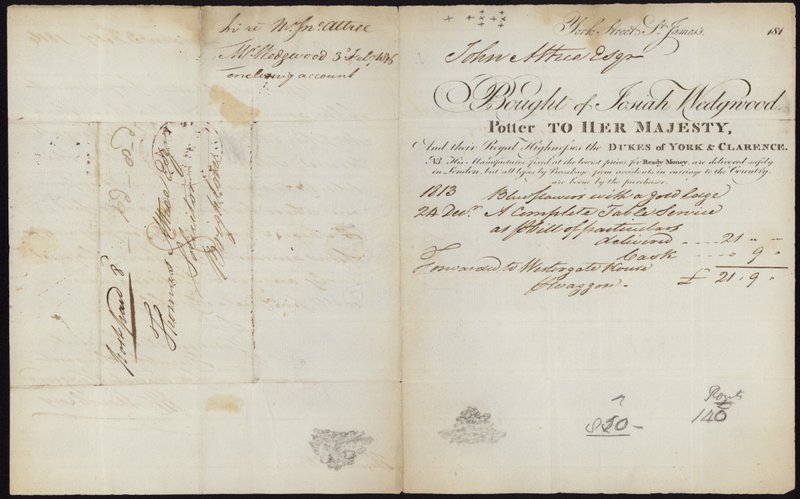 Mr Jno. Attree
Mr Wedgwood 3d Feby 1815
enclosing account
Thomas Attree Esqr
Solicitor
Brighton
post paid 8
York Street St. James's. 181
John Attree Esqr
Bought of Josiah Wedgwood.
Potter TO HER MAJESTY,
And their Royal Highnesses the DUKES of YORK & CLARENCE.
NB. His Manufactures, fixed at the lowest prices, for Ready Money, are delivered safely
in London, but all loss by Breakage from accidents in carriage to the Country
are borne by the purchaser.
1813 Blue flowers with a gold edge
24 Decr. A Complete Table Service
as pr Bill of particulars
delivered 21 "
Cask 9 "
Forwarded to Westergate House £ 21 " 9 "
pr Waggon.
850 - 140